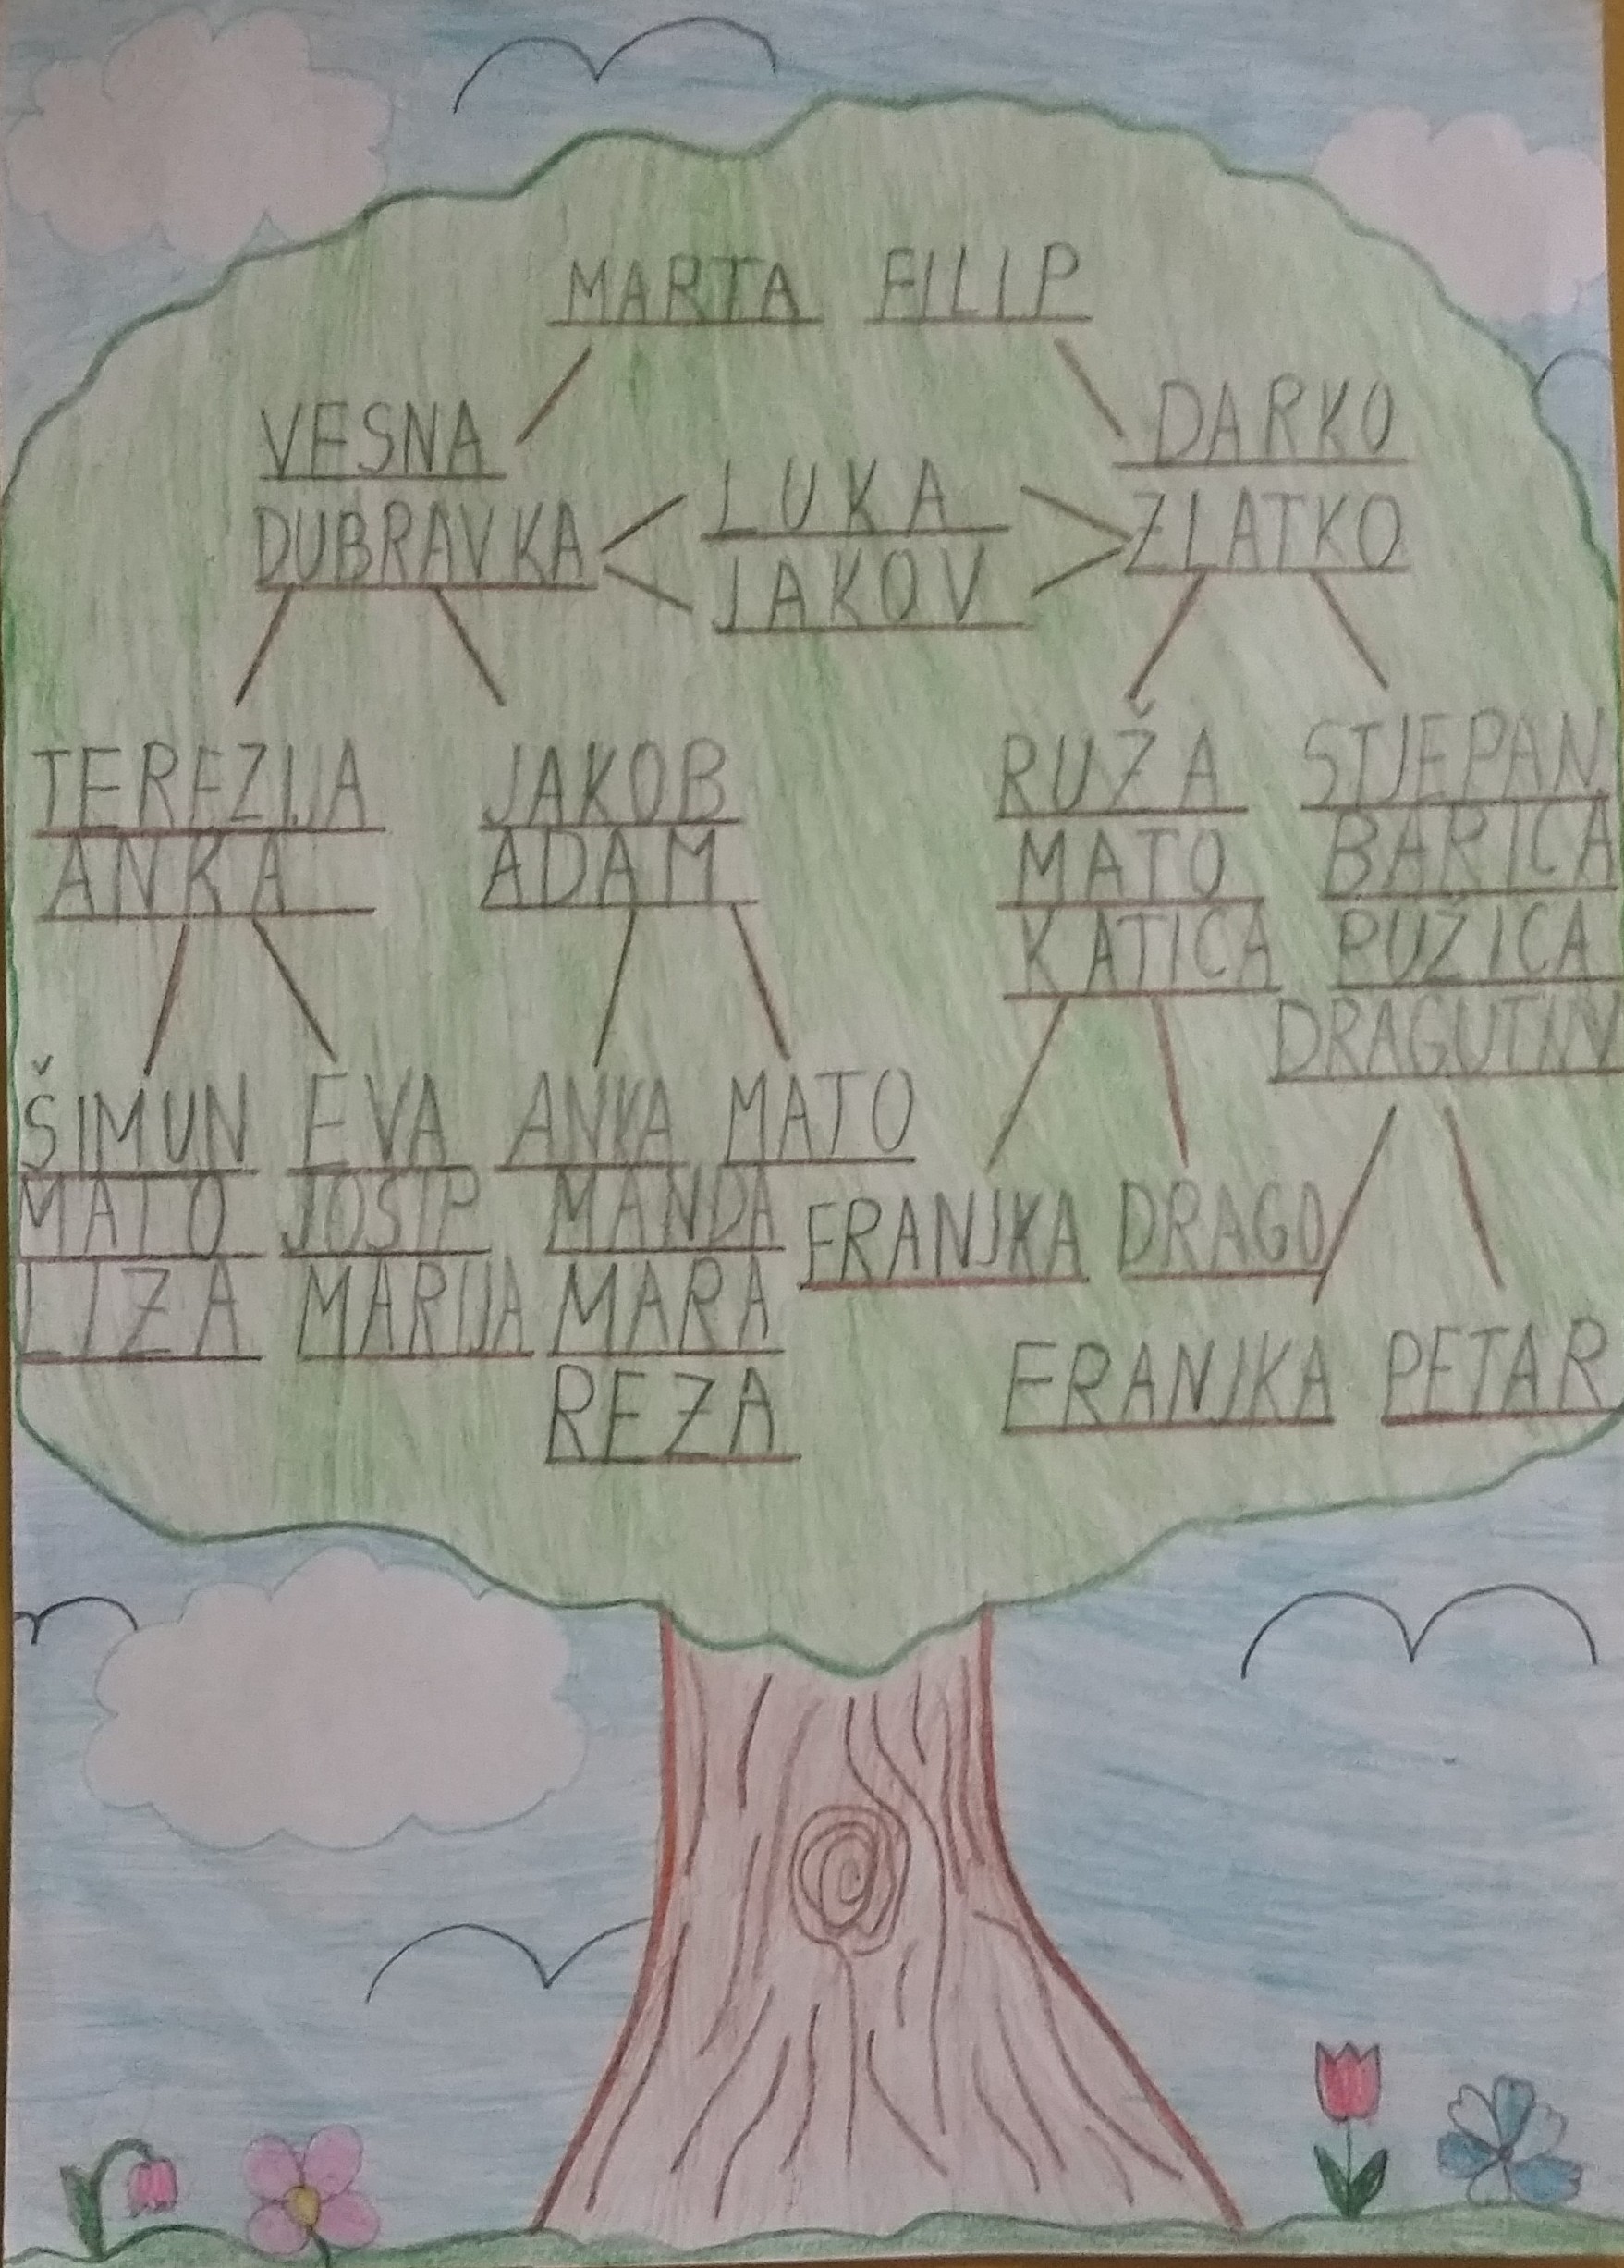 MARTA FILIP
VESNA DARKO
DUBRAVKA LUKA ZLATKO
JAKOV
TEREZIJA JAKOB RUŽA STJEPAN
ANKA ADAM MATO BARICA
KATICA RUŽICA
DRAGUTIN
ŠIMUN EVA ANKA MATO
MATO JOSIP MANDA FRANJKA DRAGO
LIZA MARIJA MARA FRANJKA PETAR
REZA